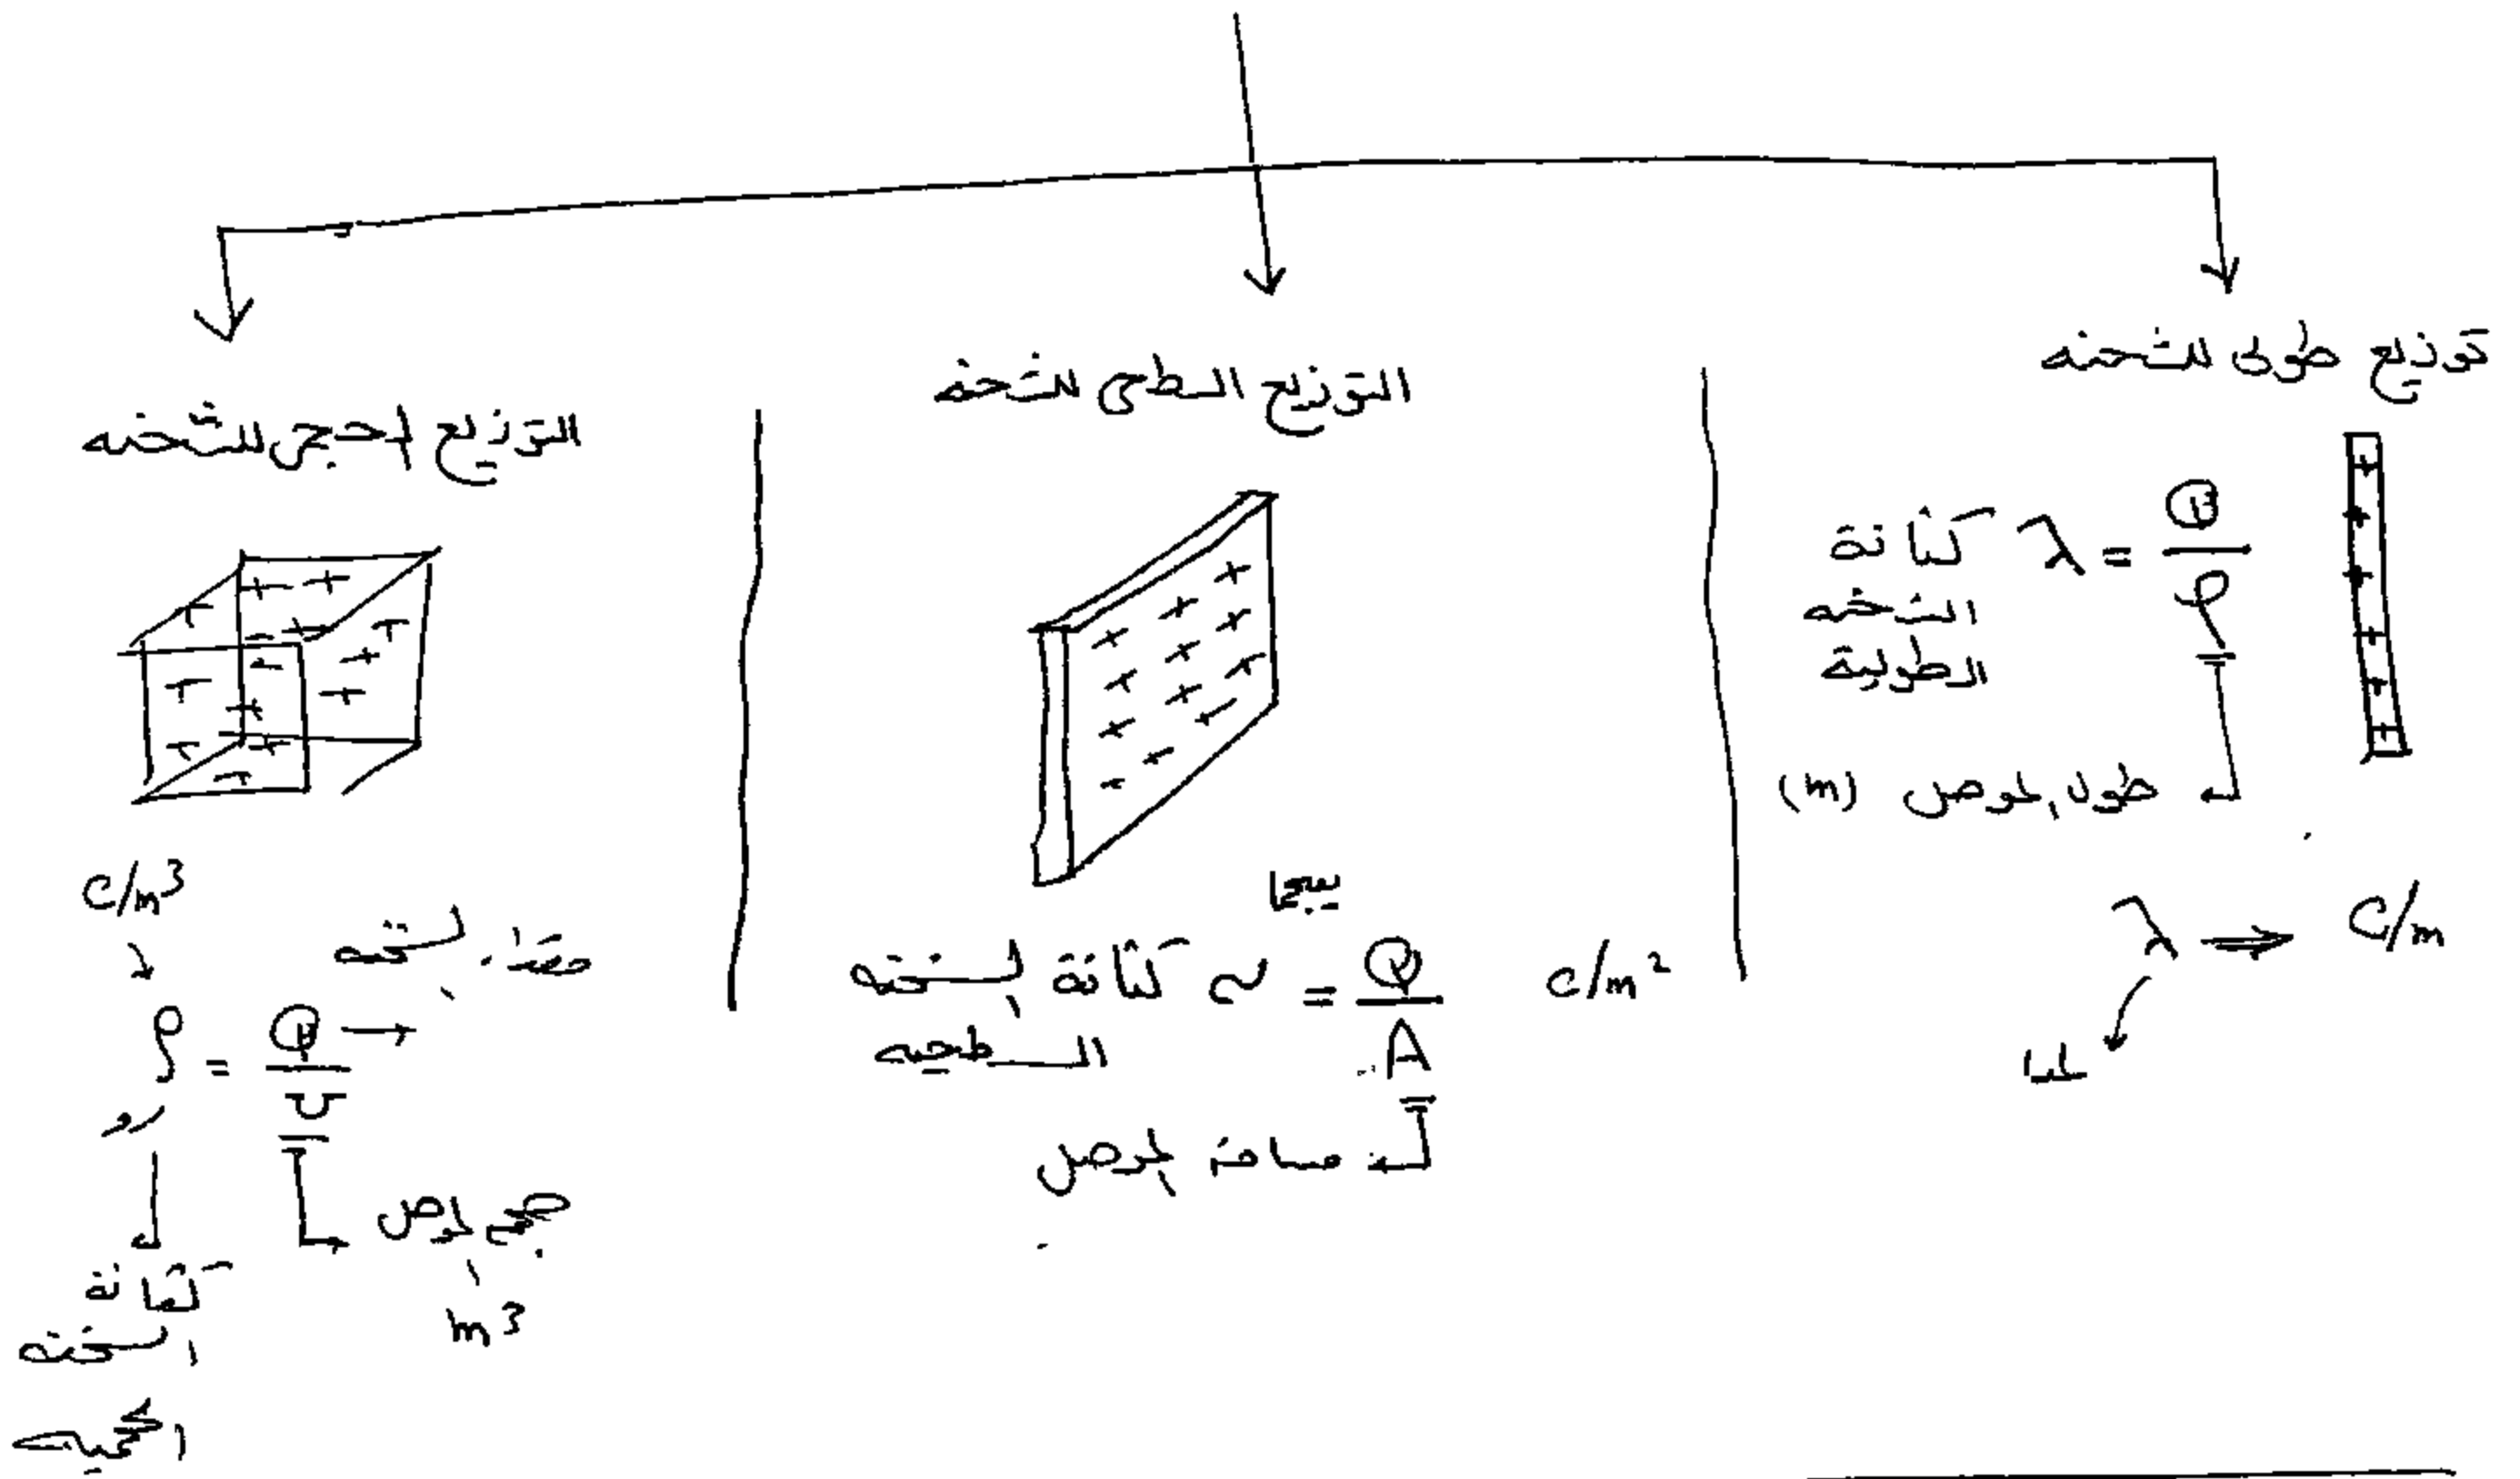 توزيع طولى للشحنه
λ = Q / ℓ
كثافة
الشحنه
الطولية
طول الموصل (m)
λ ⇒ C/m
لمدا
التوزيع السطحى للشحنه
سيجما
C/m² σ = Q / A كثافة الشحنه
السطحيه
مساحة الموصل
التوزيع الحجمى للشحنه
C/m³
مقدار الشحنه
ρ = Q / V
رو
حجم الموصل
m³
كثافة
الشحنه
الحجميه